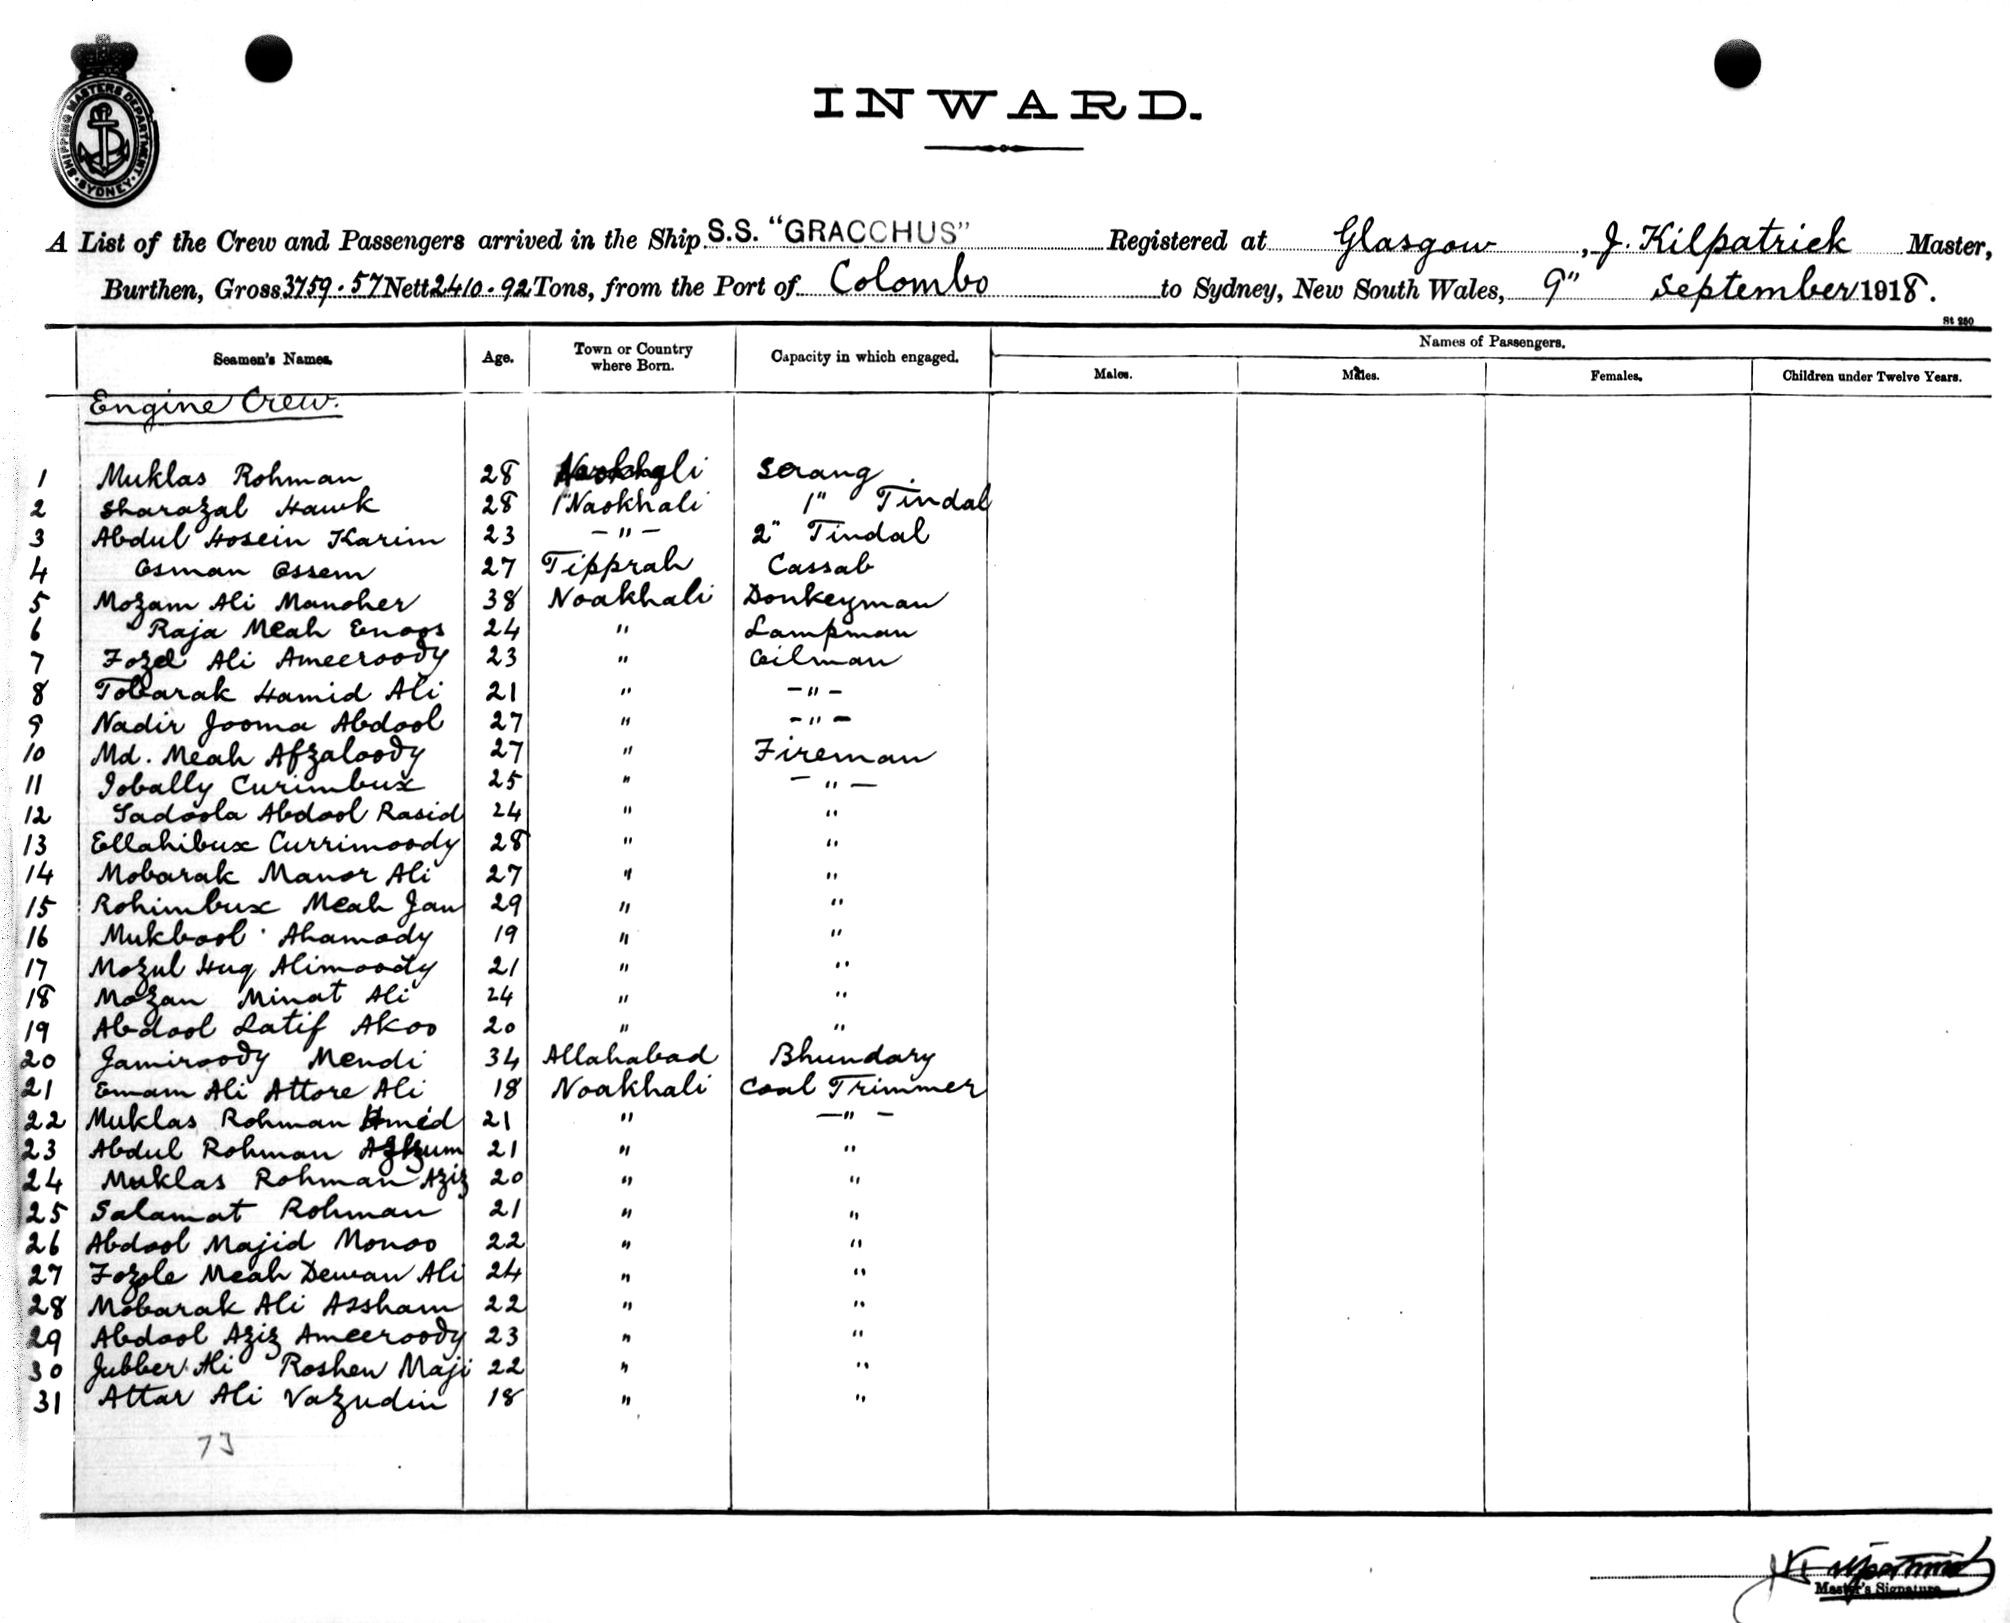 SHIPPING MASTERS DEPARTMENT
SYDNEY
INWARD.
A List of the Crew and Passengers arrived in the Ship S.S. "GRACCHUS" Registered at Glasgow, J. Kilpatrick Master,
Burthen, Gross 3759.57 Nett 2410.92 Tons, from the Port of Colombo to Sydney, New South Wales, 9" September 1918.
St 250
Seamen's Names. Age. Town or Country where Born. Capacity in which engaged. Names of Passengers.
Males. Males. Females. Children under Twelve Years.
Engine Crew.
1 Muklas Rohman 28 Serang
2 Sharazal Hawk 28 Naokhali 1" Tindal
3 Abdul Hosein Karim 23 -"- 2" Tindal
4 Osman Ossem 27 Tipprah Cassab
5 Mozam Ali Manoher 38 Noakhali Donkeyman
6 Raja Meah Enoos 24 " Lampman
7 Fozel Ali Ameeroody 23 " Oilman
8 Tobarak Hamid Ali 21 " -"-
9 Nadir Jooma Abdool 27 " -"-
10 Md. Meah Afzaloody 27 " Fireman
11 Iobally Curimbux 25 " -"-
12 Sadoola Abdool Rasid 24 " "
13 Ellahibux Currimoody 28 " "
14 Mobarak Manor Ali 27 " "
15 Rohimbux Meah Jan 29 " "
16 Mukbool Ahamody 19 " "
17 Mozul Huq Alimoody 21 " "
18 Mozan Minat Ali 24 " "
19 Abdool Latif Akoo 20 " "
20 Jamiroody Mendi 34 Allahabad Bhundary
21 Emam Ali Attore Ali 18 Noakhali Coal Trimmer
22 Muklas Rohman 21 " -"-
23 Abdul Rohman 21 " "
24 Muklas Rohman Aziz 20 " "
25 Salamat Rohman 21 " "
26 Abdool Majid Monoo 22 " "
27 Fozle Meah Dewan Ali 24 " "
28 Mobarak Ali Assham 22 " "
29 Abdool Aziz Ameeroody 23 " "
30 Jubber Ali Roshen Maji 22 " "
31 Attar Ali Vazudin 18 " "
73
Master's Signature